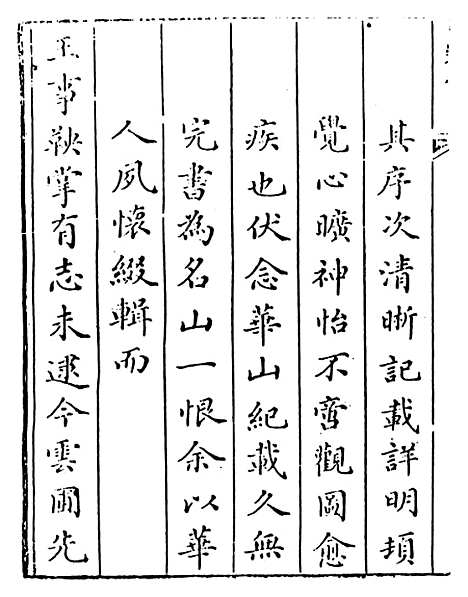 其序次清晰記載詳明頓
覺心曠神怡不啻觀圖愈
疾也伏念華山紀載久無
完書為名山一恨余以華
人夙懷綴輯而
王事鞅掌有志未逮今雲圃先